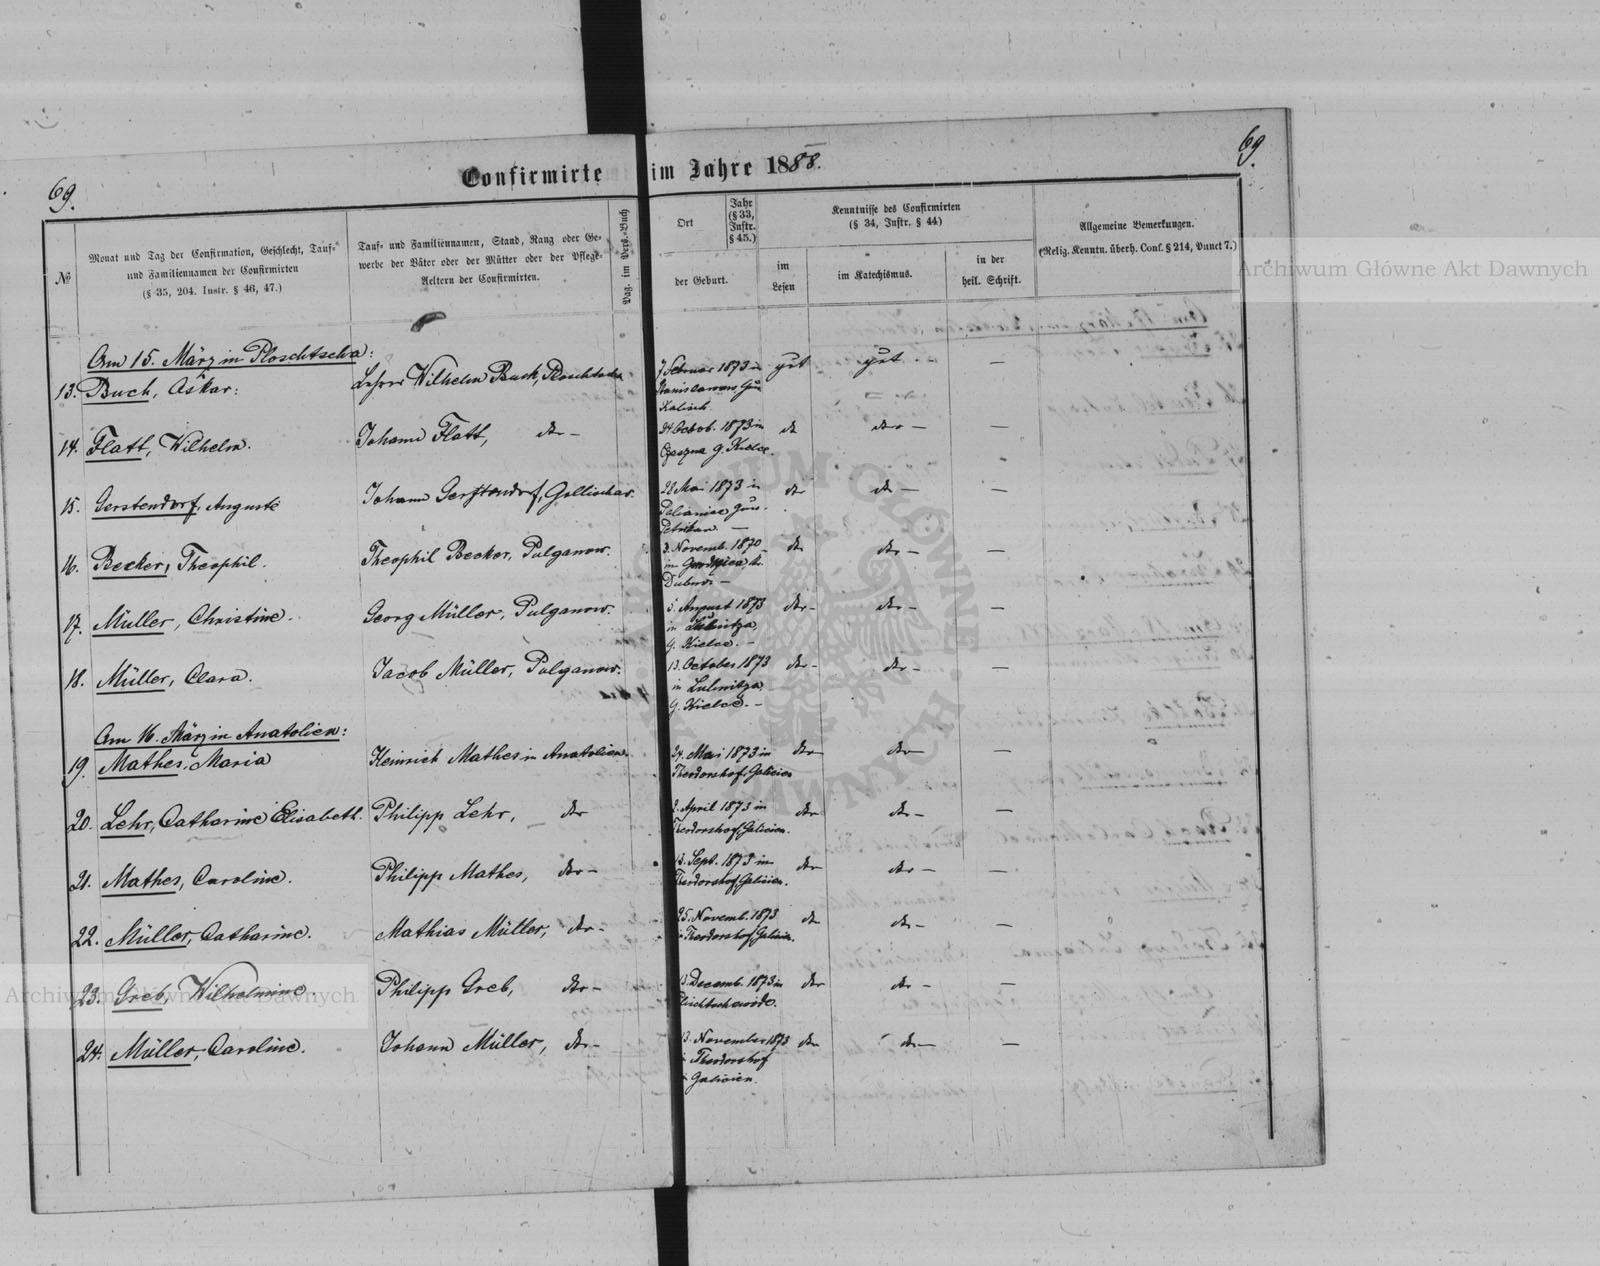 69.
69.
Confirmirte im Jahre 1888.
№
Monat und Tag der Confirmation, Geschlecht, Tauf-
und Familiennamen der Confirmirten
(§ 35, 204. Instr. § 46, 47.)
Tauf- und Familiennamen, Stand, Rang oder Ge-
werbe der Väter oder der Mütter oder der Pflege-
Aeltern der Confirmirten.
Pag. im Pers.-Buch
Ort
Jahr
(§ 33,
Instr.
§ 45.)
der Geburt.
Kenntnisse des Confirmirten
(§ 34, Instr. § 44)
im
Lesen
im Katechismus.
in der
heil. Schrift.
Allgemeine Bemerkungen.
(Relig. Kenntn. überh. Conf. § 214, Punct 7.)
Am 15. März in Ploschtscha:
13. Buch, Askar: Lehrer Wilhelm Buch, 7 Februar 1873 in gut gut. —
Kalisch.
14. Flatt, Wilhelm. Johann Flatt, dto — 24 Octob. 1873 in dto dto — —
g. Kielce.
15. Gerstendorf, Auguste Johann Gerstendorf, 28 Mai 1873 in dto dto — —
Pabianice Gou.
Petrikau —
16. Becker, Theophil. Theophil Becker, Pulganow. 3. Novemb. 1870 dto dto — —
Dubno. —
17. Müller, Christine. Georg Müller, Pulganow. 5. August 1873 dto — dto — —
g. Kielce. —
18. Müller, Clara. Jacob Müller, Pulganow. 13. October 1873 dto — dto — —
in Lubnitza,
g. Kielce. —
Am 16. März in Anatolien:
19. Mathes, Maria Heinrich Mathes in Anatolien. 24. Mai 1873 in dto dto — —
Theodorshof, Galicien
20. Lehr, Catharine Elisabeth. Philipp Lehr, dto 2. April 1873 in dto dto — —
Theodorshof, Galicien.
21. Mathes, Caroline. Philipp Mathes, dto — 13. Sept. 1873 in dto dto — —
Theodorshof, Galicien.
22. Müller, Catharine. Mathias Müller, dto — 25. Novemb. 1873 dto dto — —
in Theodorshof, Galicien.
23. Greb, Wilhelmine. Philipp Greb, dto — 13. Decemb. 1873 in dto dto — —
24. Müller, Caroline. Johann Müller, dto — 13. November 1873 dto dto — —
in Theodorshof
in Galicien.
Archiwum Główne Akt Dawnych
Archiwum Główne Akt Dawnych
ARCHIWUM GŁÓWNE AKT DAWNYCH